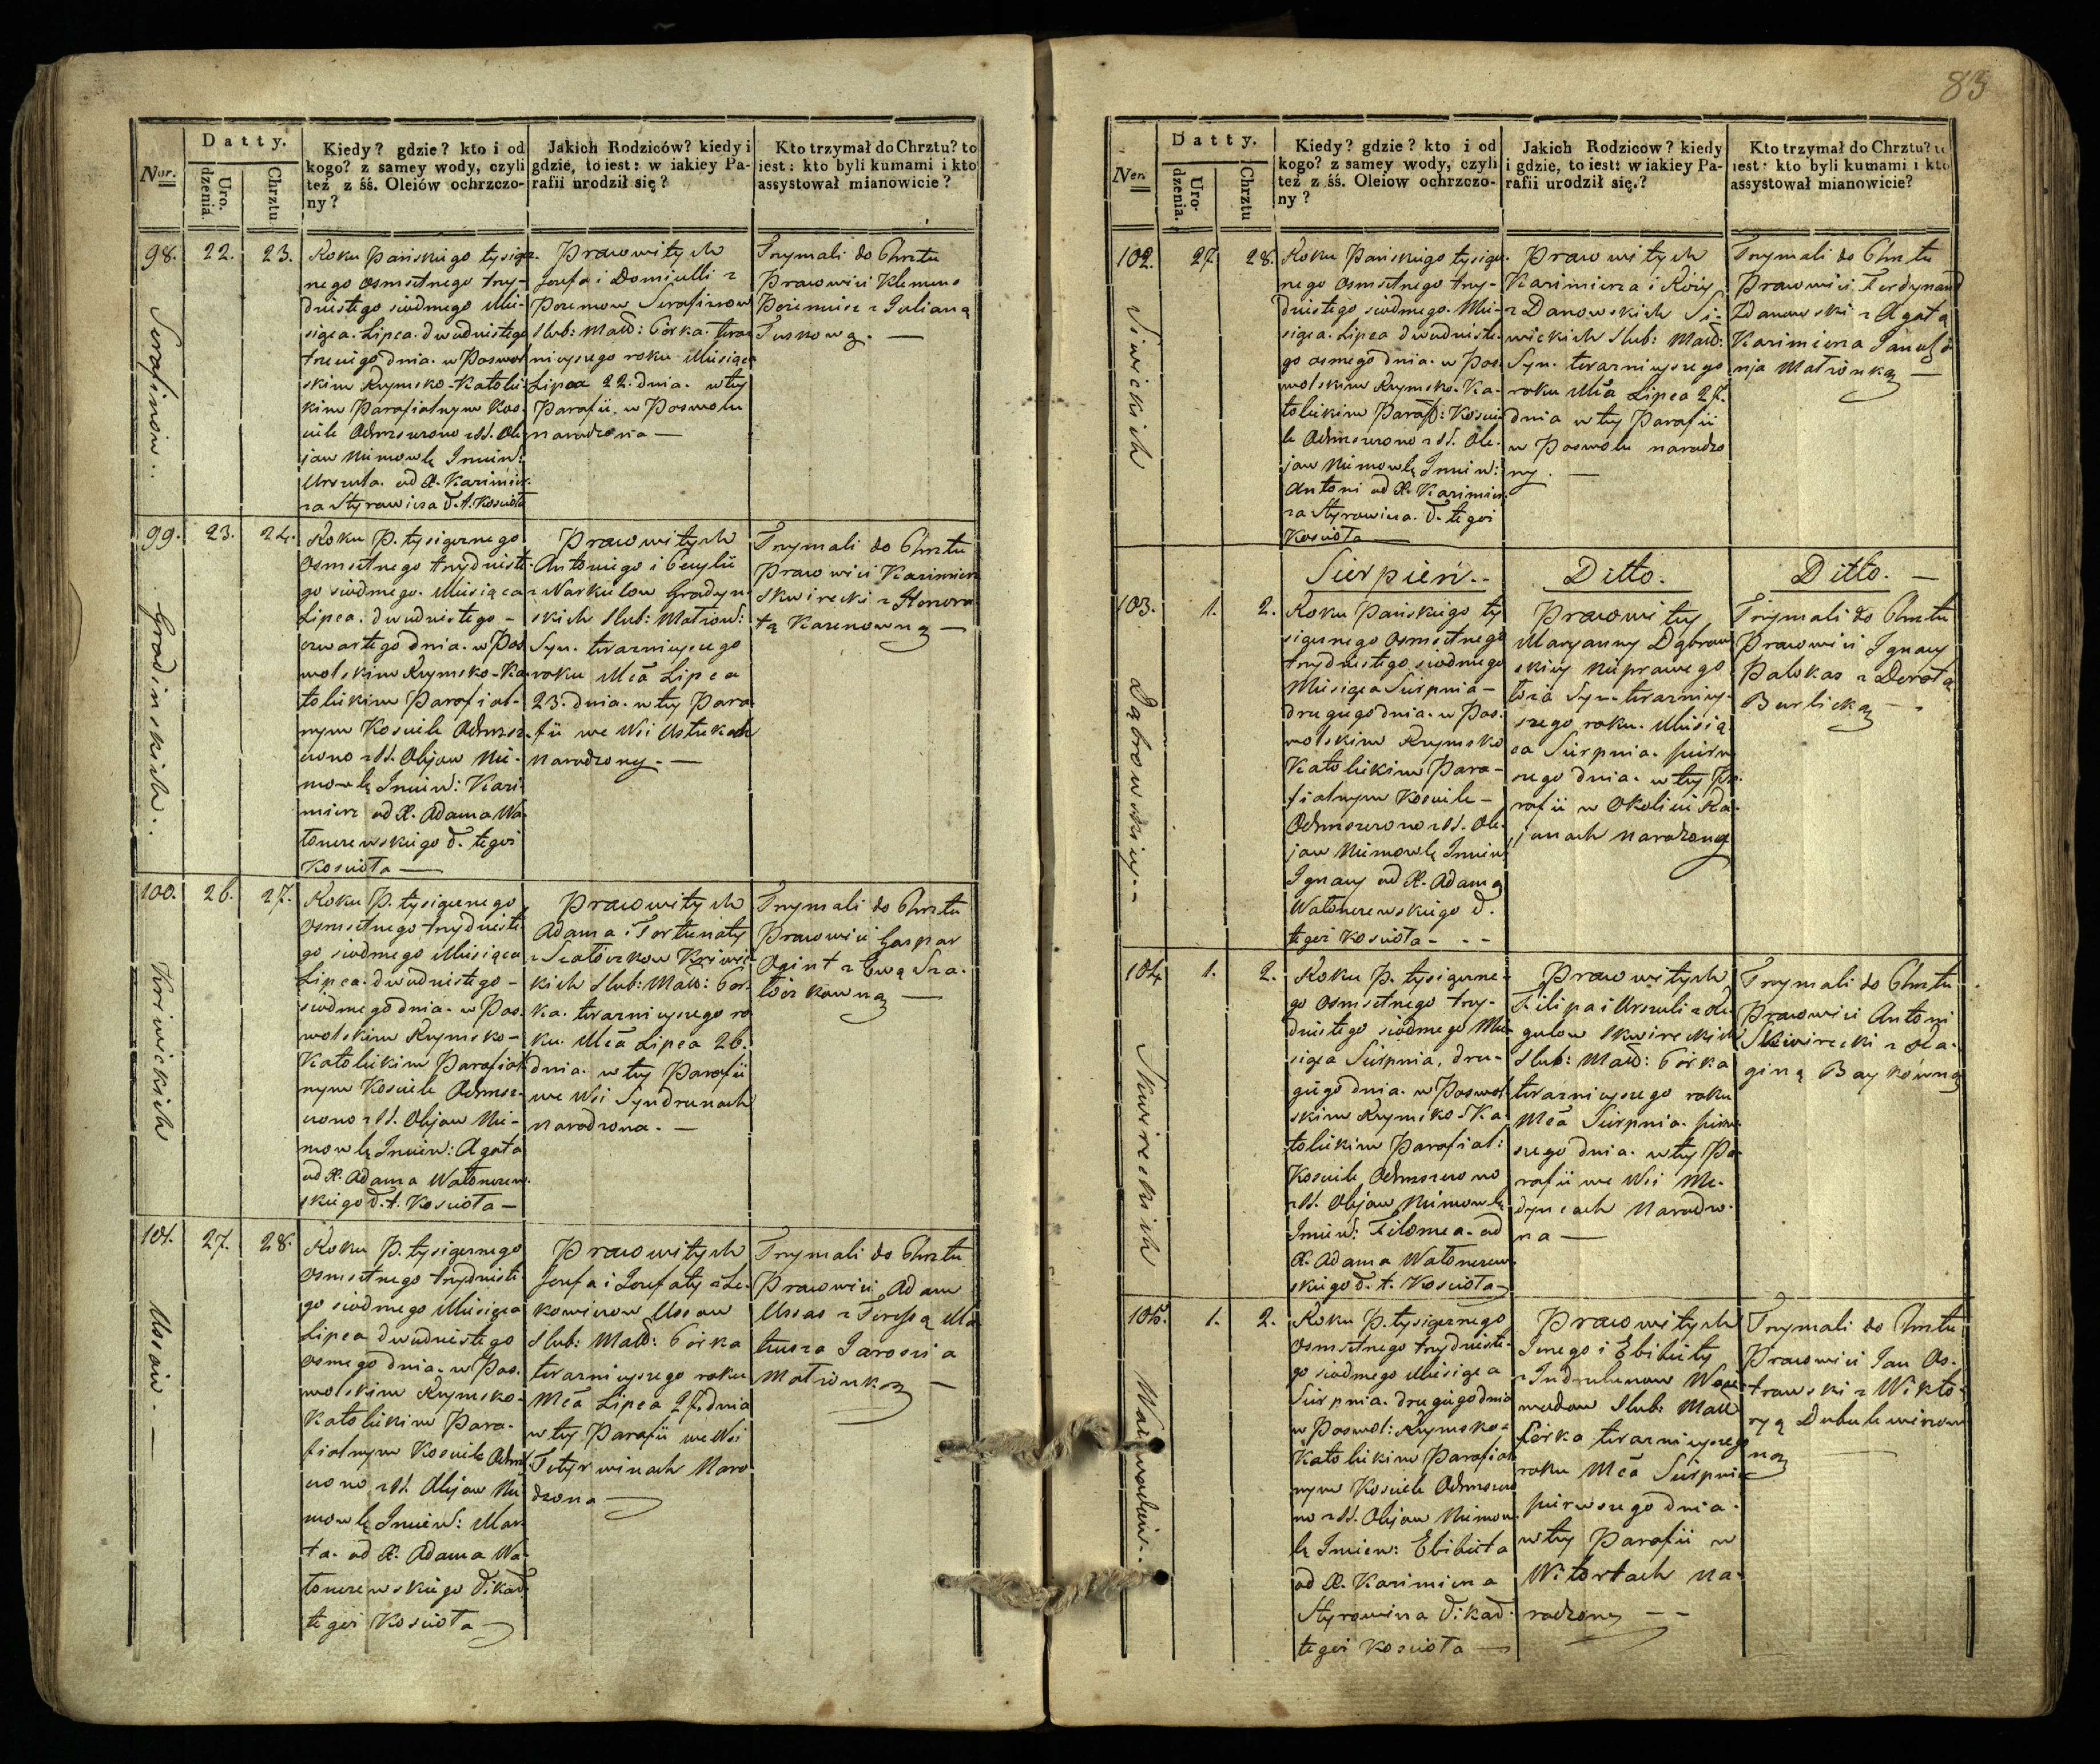 83
Datty.
Nor.
Uro.
dzenia.
Chrztu
Kiedy? gdzie? kto i od
kogo? z samey wody, czyli
też z śś. Oleiów ochrzczo-
ny?
Jakich Rodziców? kiedy i
gdzie, to iest: w iakiey Pa-
rafii urodził się?
Kto trzymał do Chrztu? to
iest: kto byli kumami i kto
assystował mianowicie?
98.
Serafinow.
22.
23.
Roku Pańskiego tysiąc
nego osmsetnego trzy-
dziestego siodmego Mie-
siąca Lipca dwudziestego
trzeciego dnia w Poswol
skim Rzymsko-Katolic
kim Parafialnym Kos-
ciele Ochrzczono z SS. Ole
jow Niemowlę Imien:
Urszula od X. Kazimier
za Styrowicza d. t. Koscioła
Prawowitych
Jozefa i Domicelli z
Pozemow Serafinow
slub: Małż: Córka teraz
nieyszego roku Miesiąca
Lipca 22. dnia w tey
Parafii w Poswolu
narodzona —
Trzymali do Chrztu
Prawowici Klemens
Pozemisz z Julianą
Tuskową. —
99.
Gradinskich..
23.
24.
Roku P. tysiącznego
osmsetnego trzydzieste
go siodmego Miesiąca
Lipca dwudziestego -
czwartego dnia w Pos
wolskim Rzymsko-Ka
tolickim Parafial-
nym Kosciele Ochrz-
czono z SS. Olejow Nie-
mowlę Imien: Kazi
mierz od X. Adama Wa
łonczewskiego d. tegoż
Koscioła —
Prawowitych
Antoniego i Cecylii
z Narkutow Gradyn
skich slub: Małżon:
Syn teraznieyszego
roku Mca Lipca
23. dnia w tey Para
fii we Wsi Ustukach
narodzony. —
Trzymali do Chrztu
Prawowici Kazimierz
Skwirecki z Honora
tą Karenowną —
100.
Kriwickich
26.
27.
Roku P. tysiącznego
osmsetnego trzydzieste
go siodmego Miesiąca
Lipca dwudziestego -
siodmego dnia w Pos
wolskim Rzymsko-
Katolickim Parafial
nym Kosciele Ochrz-
czono z SS. Olejow Nie-
mowlę Imien: Agata
od X. Adama Wałonczew
skiego d. t. Koscioła —
Prawowitych
Adama i Fortunaty
z Szatorzkow Kriwic
kich slub: Małż: Cor-
ka teraznieyszego ro
ku Mca Lipca 26.
dnia w tey Parafii
we Wsi Syndrunach
narodzona. —
Trzymali do Chrztu
Prawowici Gaspar
Ogint z Ewą Sza-
torzkowną —
101.
Ussow. —
27.
28.
Roku P. tysiącznego
osmsetnego trzydzieste
go siodmego Miesiąca
Lipca dwudziestego
osmego dnia w Pos.
wolskim Rzymsko-
Katolickim Para-
fialnym Kosciele Ochrz
czono z SS. Olejow Nie
mowlę Imien: Mar-
ta od X. Adama Wa
łonczewskiego d: kad:
tegoż Koscioła
Prawowitych
Jozefa i Jozefaty z Le-
kowiczow Ussow
slub: Małż: Córka
teraznieyszego roku
Mca Lipca 27. dnia
w tey Parafii we Wsi
Tetyrwinach Naro
dzona
Trzymali do Chrztu
Prawowici Adam
Ussas z Teressą Ma
teusza Jarossia
Małżonką —
Datty.
Ner.
Uro-
dzenia.
Chrztu
Kiedy? gdzie? kto i od
kogo? z samey wody, czyli
też z śś. Oleiow ochrzczo-
ny?
Jakich Rodzicow? kiedy
i gdzie, to iest: w iakiey Pa-
rafii urodził się.?
Kto trzymał do Chrztu? to
iest: kto byli kumami i kto
assystował mianowicie?
102.
Siwickich
27.
28.
Roku Pańskiego tysiąc
nego osmsetnego trzy-
dziestego siodmego Mie-
siąca Lipca dwudzieste
go osmego dnia w Pos
wolskim Rzymsko-Ka-
tolickim Paraf: Koscie
le Ochrzczono z SS. Ole-
jow Niemowlę Imien:
Antoni od X. Kazimier
za Styrowicza d. tegoż
Koscioła —
Prawowitych
Kazimierza i Róży
z Danowskich Si-
wickich slub: Małż:
Syn teraznieyszego
roku Mca Lipca 27.
dnia w tey Parafii
w Poswolu narodzo
ny. —
Trzymali do Chrztu
Prawowici Ferdynand
Zdanowski z Agatą
Kazimierza Janulo
nja Małżonką —
Sierpień..
Ditto.
Ditto. —
103.
Dąbrowskiey
1.
2.
Roku Pańskiego ty
siącznego osmsetnego
trzydziestego siodmego
Miesiąca Sierpnia -
drugiego dnia w Pos-
wolskim Rzymsko
Katolickim Para-
fialnym Kosciele -
Ochrzczono z SS. Ole-
jow Niemowlę Imien
Ignacy od X. Adama
Wałonczewskiego d.
tegoż Koscioła - - -
Prawowitey
Maryanny Dąbrow
skiey nieprawego
łoża Syn terazniey-
szego roku Miesią
ca Sierpnia pierw
szego dnia w tey Pa-
rafii w Okolicy Ra-
junach narodzony
Trzymali do Chrztu
Prawowici Ignacy
Palokas z Dorotą
Burlicką —
104.
Skwireckich
1.
2.
Roku P. tysiączne-
go osmsetnego trzy-
dziestego siodmego Mie
siąca Sierpnia, dru-
giego dnia w Poswol
skim Rzymsko-Ka
tolickim Parafial:
Kosciele Ochrzczono
z SS. Olejow Niemowlę
Imien: Filomea od
X. Adama Wałonczew
skiego d. t. Koscioła
Prawowitych
Filipa i Urszuli z
gulow Skwireckich
slub: Małż: Córka
teraznieyszego roku
Mca Sierpnia pierw-
szego dnia w tey Pa
rafii we Wsi Me-
dyncach Narodzo-
na —
Trzymali do Chrztu
Prawowici Antoni
Skwirecki z Ra-
giną Baykowną
105.
1.
2.
Roku P. tysiącznego
osmsetnego trzydzieste-
go siodmego Miesiąca
Sierpnia drugiego dnia
w Poswol: Rzymsko-
Katolickim Parafial
nym Kosciele Ochrzczo
no z SS. Olejow Niemow
lę Imien: Elżbieta
od X. Kazimierza
Styrowicza d: kad:
tegoż Koscioła —
Prawowitych
Jerzego i Elżbiety
z Indrulunow
slub: Małż
Córka teraznieyszego
roku Mca Sierpnia
pierwszego dnia
w tey Parafii w
Witortach na-
rodzona — —
Trzymali do Chrztu
Prawowici Jan Os-
trowski z Wikto-
ryą Dubulewiczow
ną